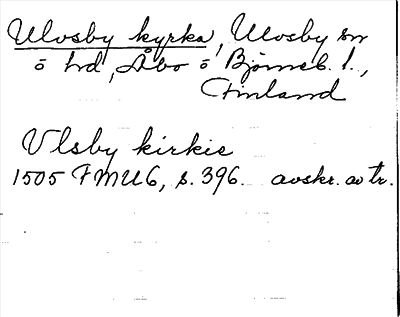 Ulvsby kyrka, Ulvsby sn
o hd, Åbo o Björneb. l.,
Finland
Vlsby kirkie
1505 FMU 6, s. 396. avskr. av tr.